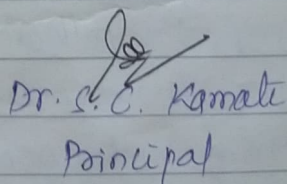 Dr. S. C. Kamate
Principal